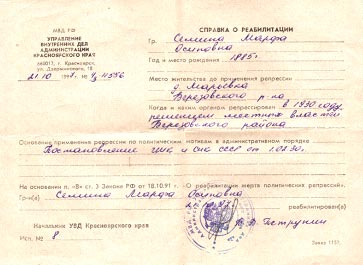 МВД РФ
УПРАВЛЕНИЕ
ВНУТРЕННИХ ДЕЛ
АДМИНИСТРАЦИИ
КРАСНОЯРСКОГО КРАЯ
660017, г. Красноярск,
ул. Дзержинского, 18
21.10 1997 г. №
СПРАВКА О РЕАБИЛИТАЦИИ
Гр. Семина Марфа
Осиповна
Год и место рождения 1885г.
Место жительства до применения репрессии
д. Маровка
Березовского р-на
Когда и каким органом репрессирован в 1930 году
решением местных властей
Березовского района
Основания применения репрессии по политическим мотивам в административном порядке
Постановление ЦИК и СНК СССР от 1.02.30г.
На основании п. «В» ст. 3 Закона РФ от 18.10.91 г. «О реабилитации жертв политических репрессий».
Гр-н(а) Семина Марфа Осиповна
Начальник УВД Красноярского края
Исп. № 8
Заказ 1151